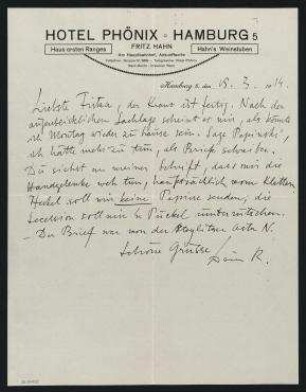 HOTEL PHÖNIX - HAMBURG 5
FRITZ HAHN
Haus ersten Ranges
Hahn's Weinstuben
Am Hauptbahnhof, Ankunftseite
Hamburg 5, den 18. 3. 1914.
Liebste Fitna, der Kranz ist fertig. Nach der
augenblicklichen Sachlage scheint es mir, als könnte
ich Montag wieder zu Hause sein. Sage
ich hätte mehr zu tun, als Briefe schreiben.
Du siehst an meiner Schrift, dass mir die
Handgelenke weh tun, hauptsächlich vom Klettern
Heckel soll mir keine Papiere senden, die
Secession soll mir n Puckel runterrutschen.
- Der Brief war von der Steglitzer N.
Schöne Grüsse
Dein R.